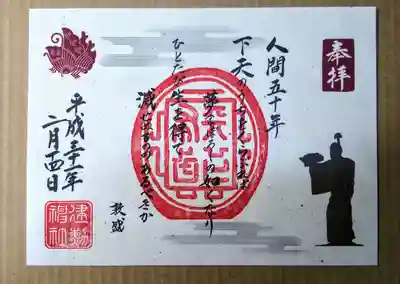 奉拝
人間五十年
下天のうちをくらぶれば
夢まぼろしの如くなり
ひとたび生を得て
滅せぬもののあるべきか
敦盛
平成三十一年
二月十四日
建勲神社